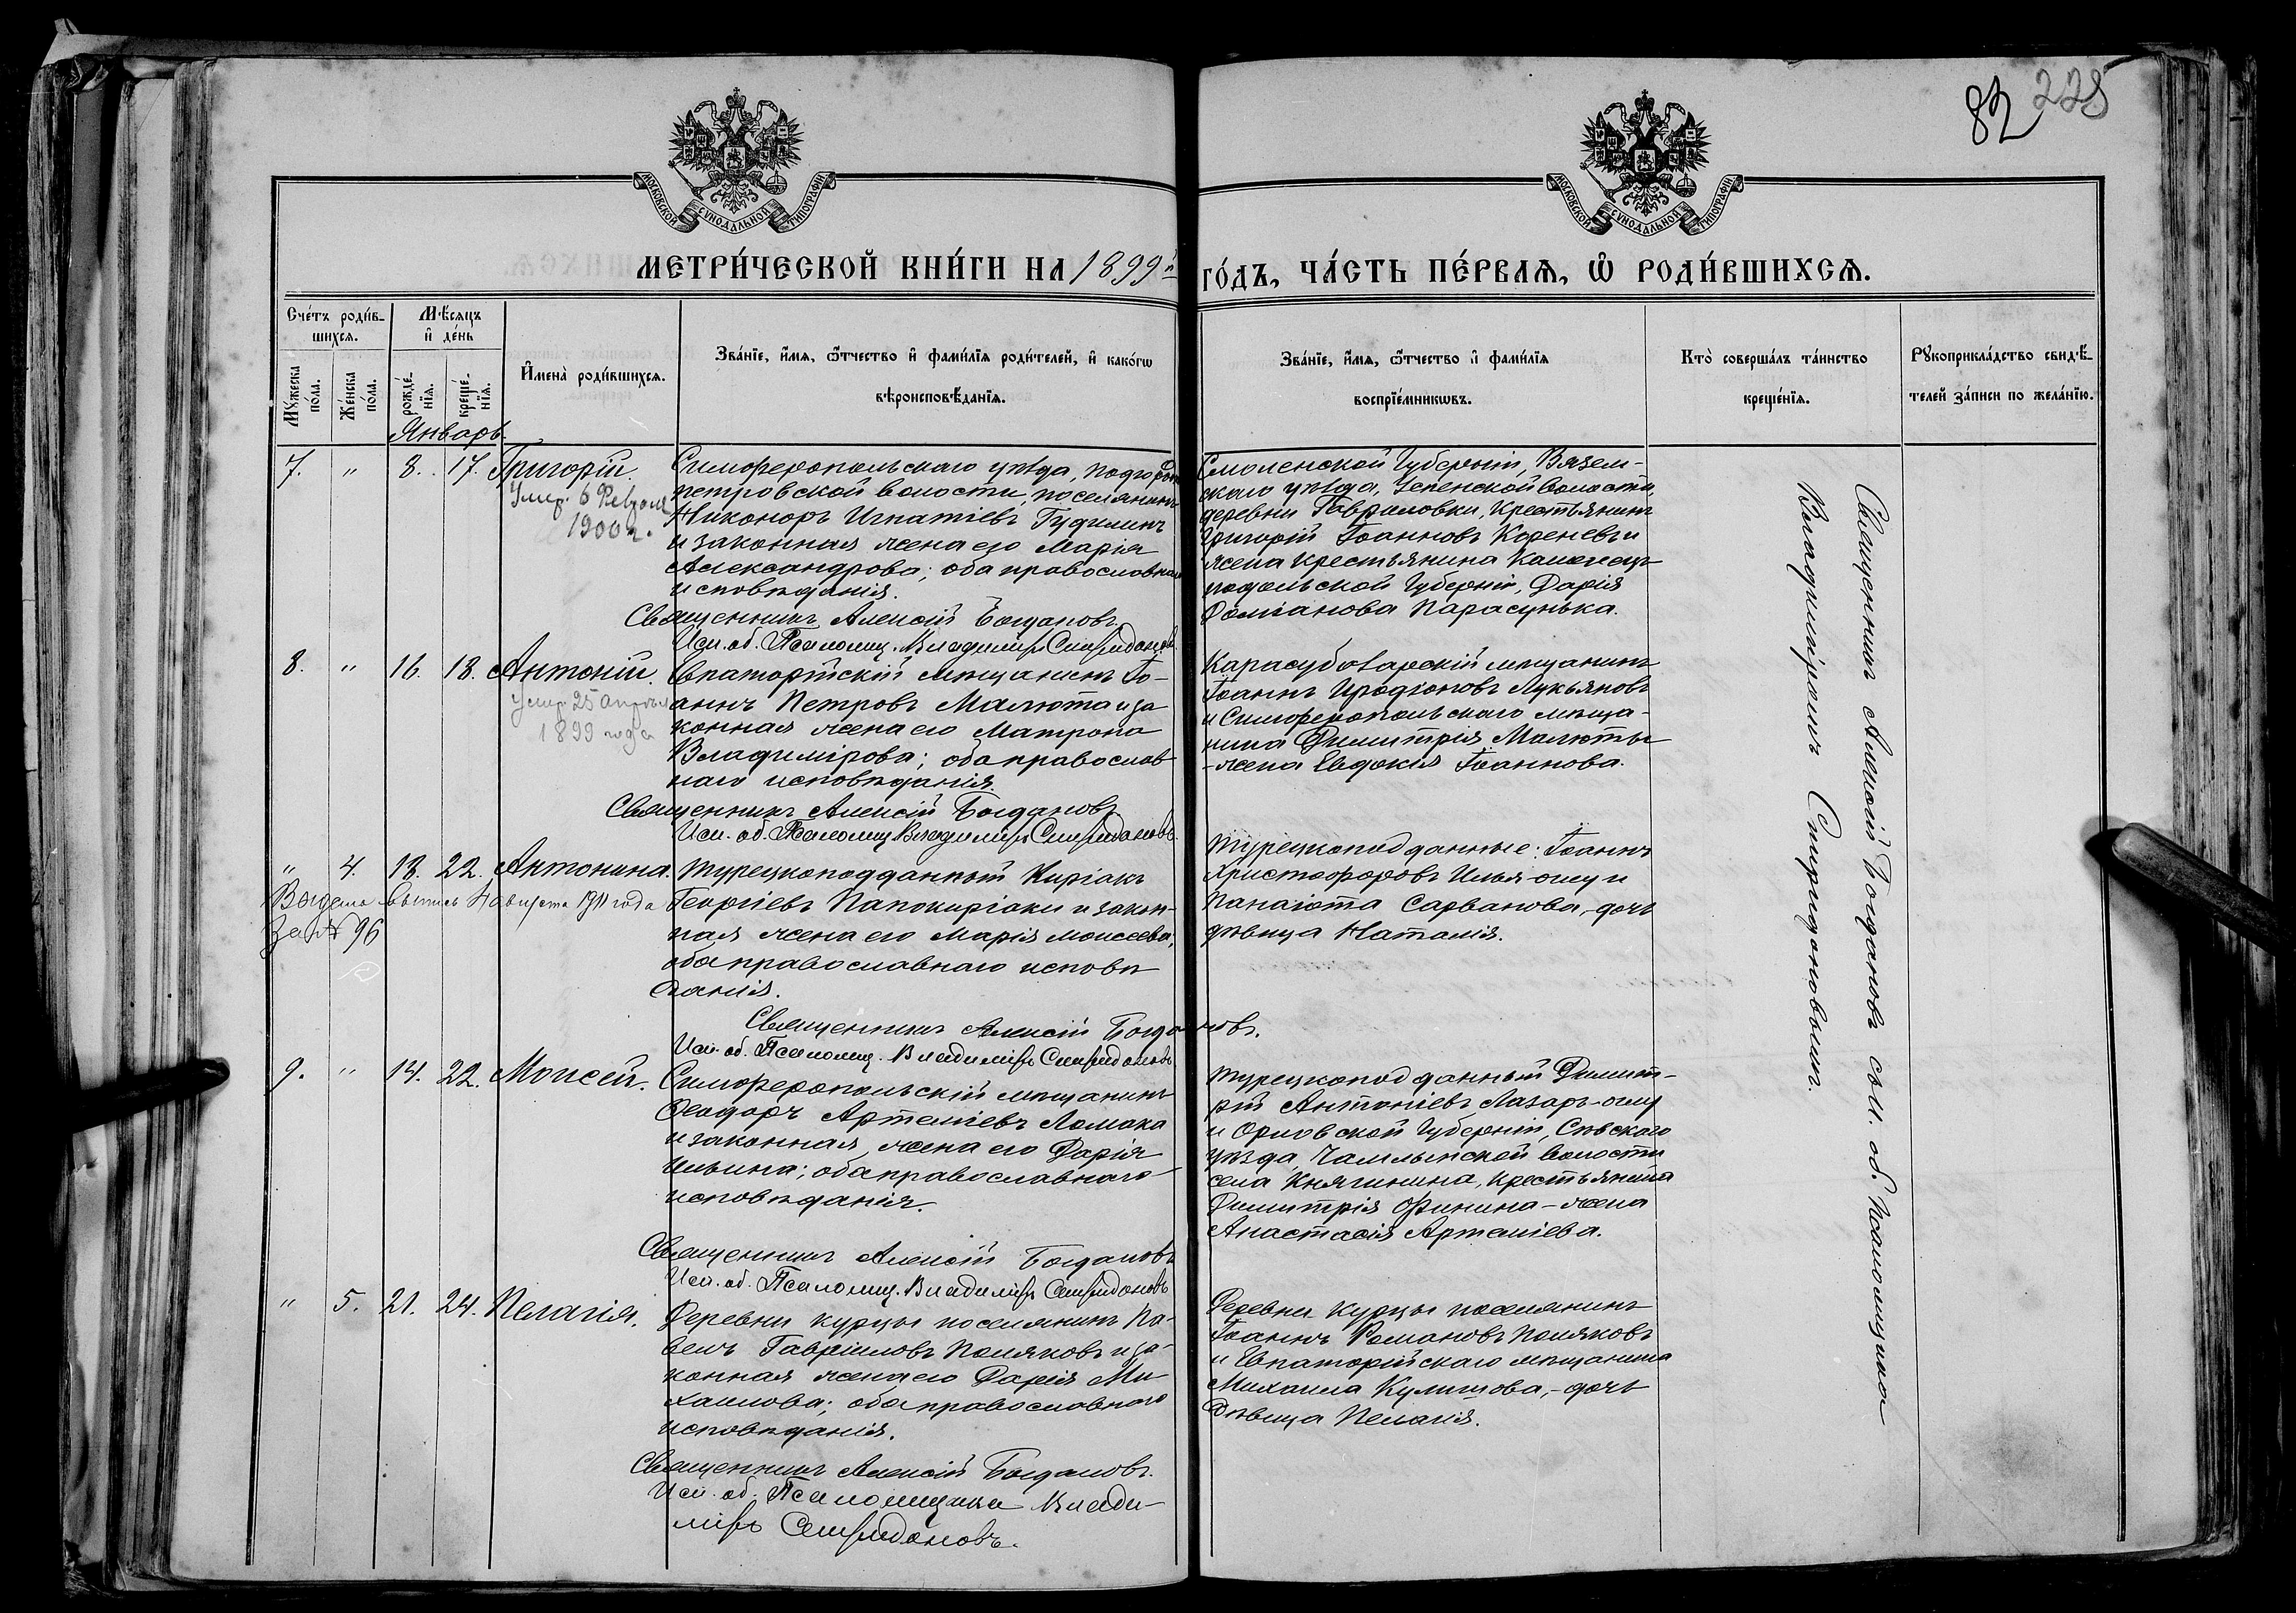 82 225
МОСКОВСКОЙ СѴНОДАЛЬНОЙ ТИПОГРАФІИ
МОСКОВСКОЙ СѴНОДАЛЬНОЙ ТИПОГРАФІИ
МЕТРИ́ЧЕСКОЙ КНИ́ГИ НА 1899й ГО́ДЪ, ЧА́СТЬ ПЕ́РВАѦ, Ѡ҆ РОДИ́ВШИХСѦ.
Сче́тъ роди́в-
шихсѧ.
Мꙋ́жеска
по́ла.
Же́нска
по́ла.
Мѣ́сѧцъ
и҆ де́нь
рожде́-
нїѧ.
креще́-
нїѧ.
И҆мена̀ роди́вшихсѧ.
Зва́нїе, и҆́мѧ, ѻ҆́тчество и҆ фами́лїѧ роди́телей, и҆ како́гѡ
вѣроисповѣ́данїѧ.
Зва́нїе, и҆́мѧ, ѻ҆́тчество и҆ фами́лїѧ
воспрїе́мникѡвъ.
Кто̀ соверша́лъ та́инство
креще́нїѧ.
Рꙋкоприкла́дство свидѣ́-
телей за́писи по жела́нїю.
Январь
7. " 8. 17. Григорій.
Умер. 6 Феврал
1900 г.
Симферопольскаго уѣзда, Подгородне
петровской волости, поселянинъ
Никоноръ Игнатіевъ Гудилинъ
и законная жена его Марія
Александрова; оба православнаго
исповѣданія.
Священникъ Алексій Богдановъ
Исп. об. Псаломщ. Владиміръ Спиридоновъ.
Смоленской Губерніи, Вязем-
скаго уѣзда, Успенской волости,
деревни Гавриловки, Крестьянинъ
Григорій Іоанновъ Кореневъ и
жена Крестьянина Каменецъ
подольской Губерніи, Дарія
Даміанова Парасунька.
8. " 16. 18. Антоній.
Умер 25 апрѣля
1899 года
Евпаторійскій мѣщанинъ Іо-
аннъ Петровъ Малюта и за-
конная жена его Матрона
Владимірова; оба православ
наго исповѣданія.
Священникъ Алексій Богдановъ
Исп. об. Псаломщ. Владиміръ Спиридоновъ.
Карасубазарскій мѣщанинъ
Іоаннъ Иродіоновъ Лукьяновъ
и Симферопольскаго мѣща-
нина Димитрія Малюты
-жена Евдокія Іоаннова.
" 4. 18. 22. Антонина.
Выдана выпись 4 августа 1911 года
За № 96
Турецкоподданный Киріакъ
Георгіевъ Папокиріаки и закон-
ная жена его Марія Моисеева,
оба православнаго исповѣ
данія.
Священникъ Алексій Богдановъ.
Исп. об. Псаломщ. Владиміръ Спиридоновъ
Турецкоподданные: Іоаннъ
Христофоровъ Илья-оглу и
Панаіота Сарванова, - дочь
дѣвица Наталія.
9. " 14. 22. Моисей.
Симферопольскій мѣщанинъ
Ѳеодоръ Артеміевъ Ломака
и законная жена его Дарія
Ильина; оба православнаго
исповѣданія.
Священникъ Алексій Богдановъ
Исп. об. Псаломщ. Владиміръ Спиридоновъ
Турецкоподданный Димит-
рій Антоніевъ Лазарь-оглу
и Орловской Губерніи, Сѣвскаго
уѣзда, Чамлыжской волости
села Княгинина, Крестьянина
Димитрія Финина - жена
Анастасія Артеміева.
" 5. 21. 24. Пелагія.
Деревни Курцы поселянинъ Па-
велъ Гавріиловъ Поляковъ и за-
конная жена его Дарія Ми
хаилова; оба православнаго
исповѣданія.
Священникъ Алексій Богдановъ.
Исп. об. Псаломщика Влади-
міръ Спиридоновъ.
Деревни Курцы поселянинъ
Іоаннъ Романовъ Поляковъ
и Евпаторійскаго мѣщанина
Михаила Кулишова, - дочь
дѣвица Пелагія.
Священникъ Алексій Богдановъ съ и. об. Псаломщика
Владиміромъ Спиридоновымъ.